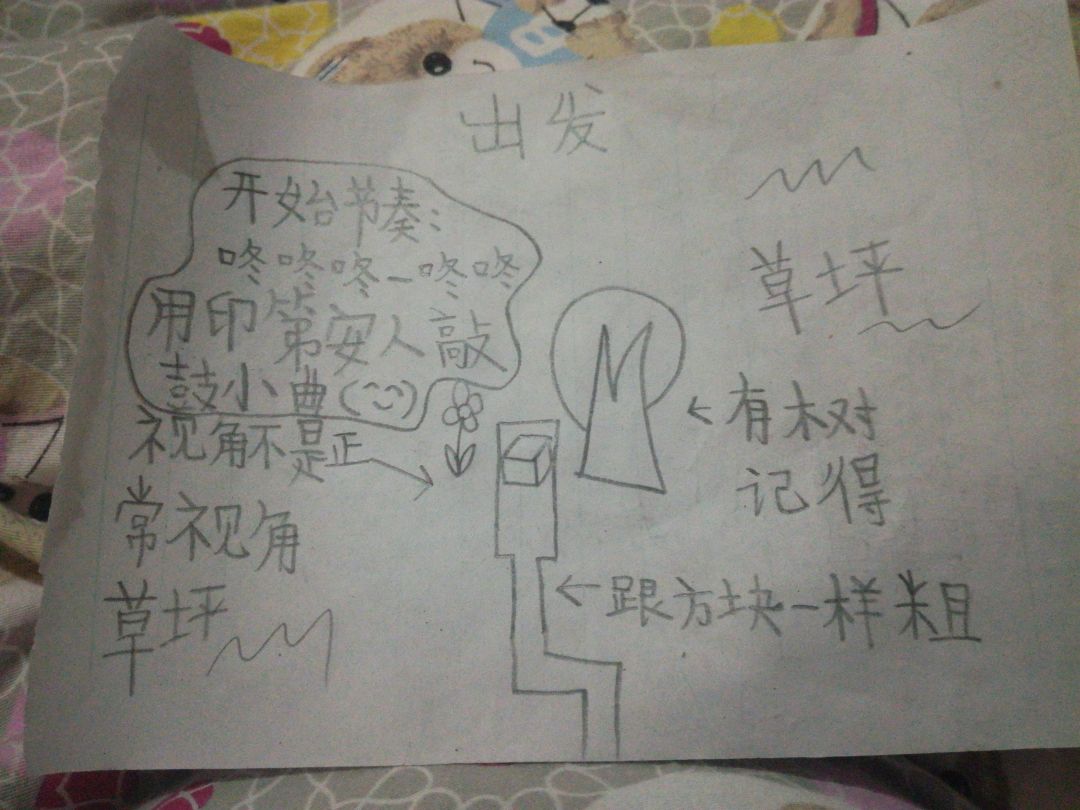 出发
开始节奏：
咚咚咚-咚咚
用印第安人敲
鼓小曲(
视角不是正
常视角
草坪
草坪
←有树
记得
←跟方块一样粗
8